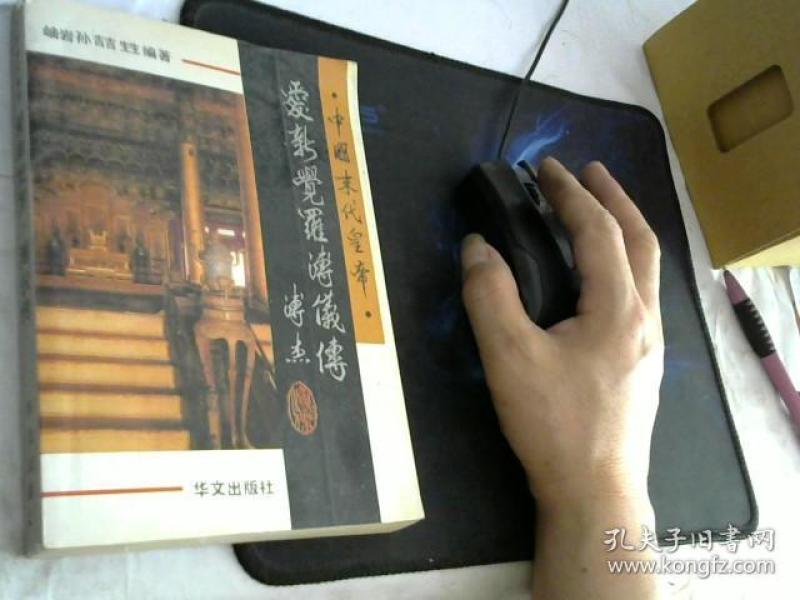 岫岩孙喆甡编著
·中國末代皇帝·
愛新覺羅溥儀傳
溥杰
华文出版社
孔夫子旧書网
www.kongfz.com